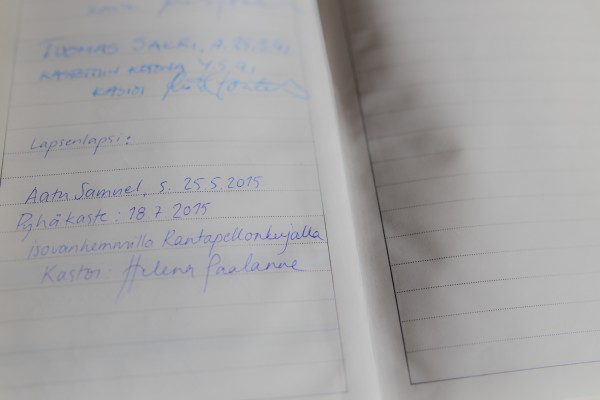 TUOMAS
KASTETTIIN KOTONA 4.5.91
KASTOI
Lapsenlapsi:
Aatu Samuel, s. 25.5.2015
Pyhä kaste: 18.7.2015
isovanhemmilla Rantapellonkujalla
Kastoi: Helena Paalanne